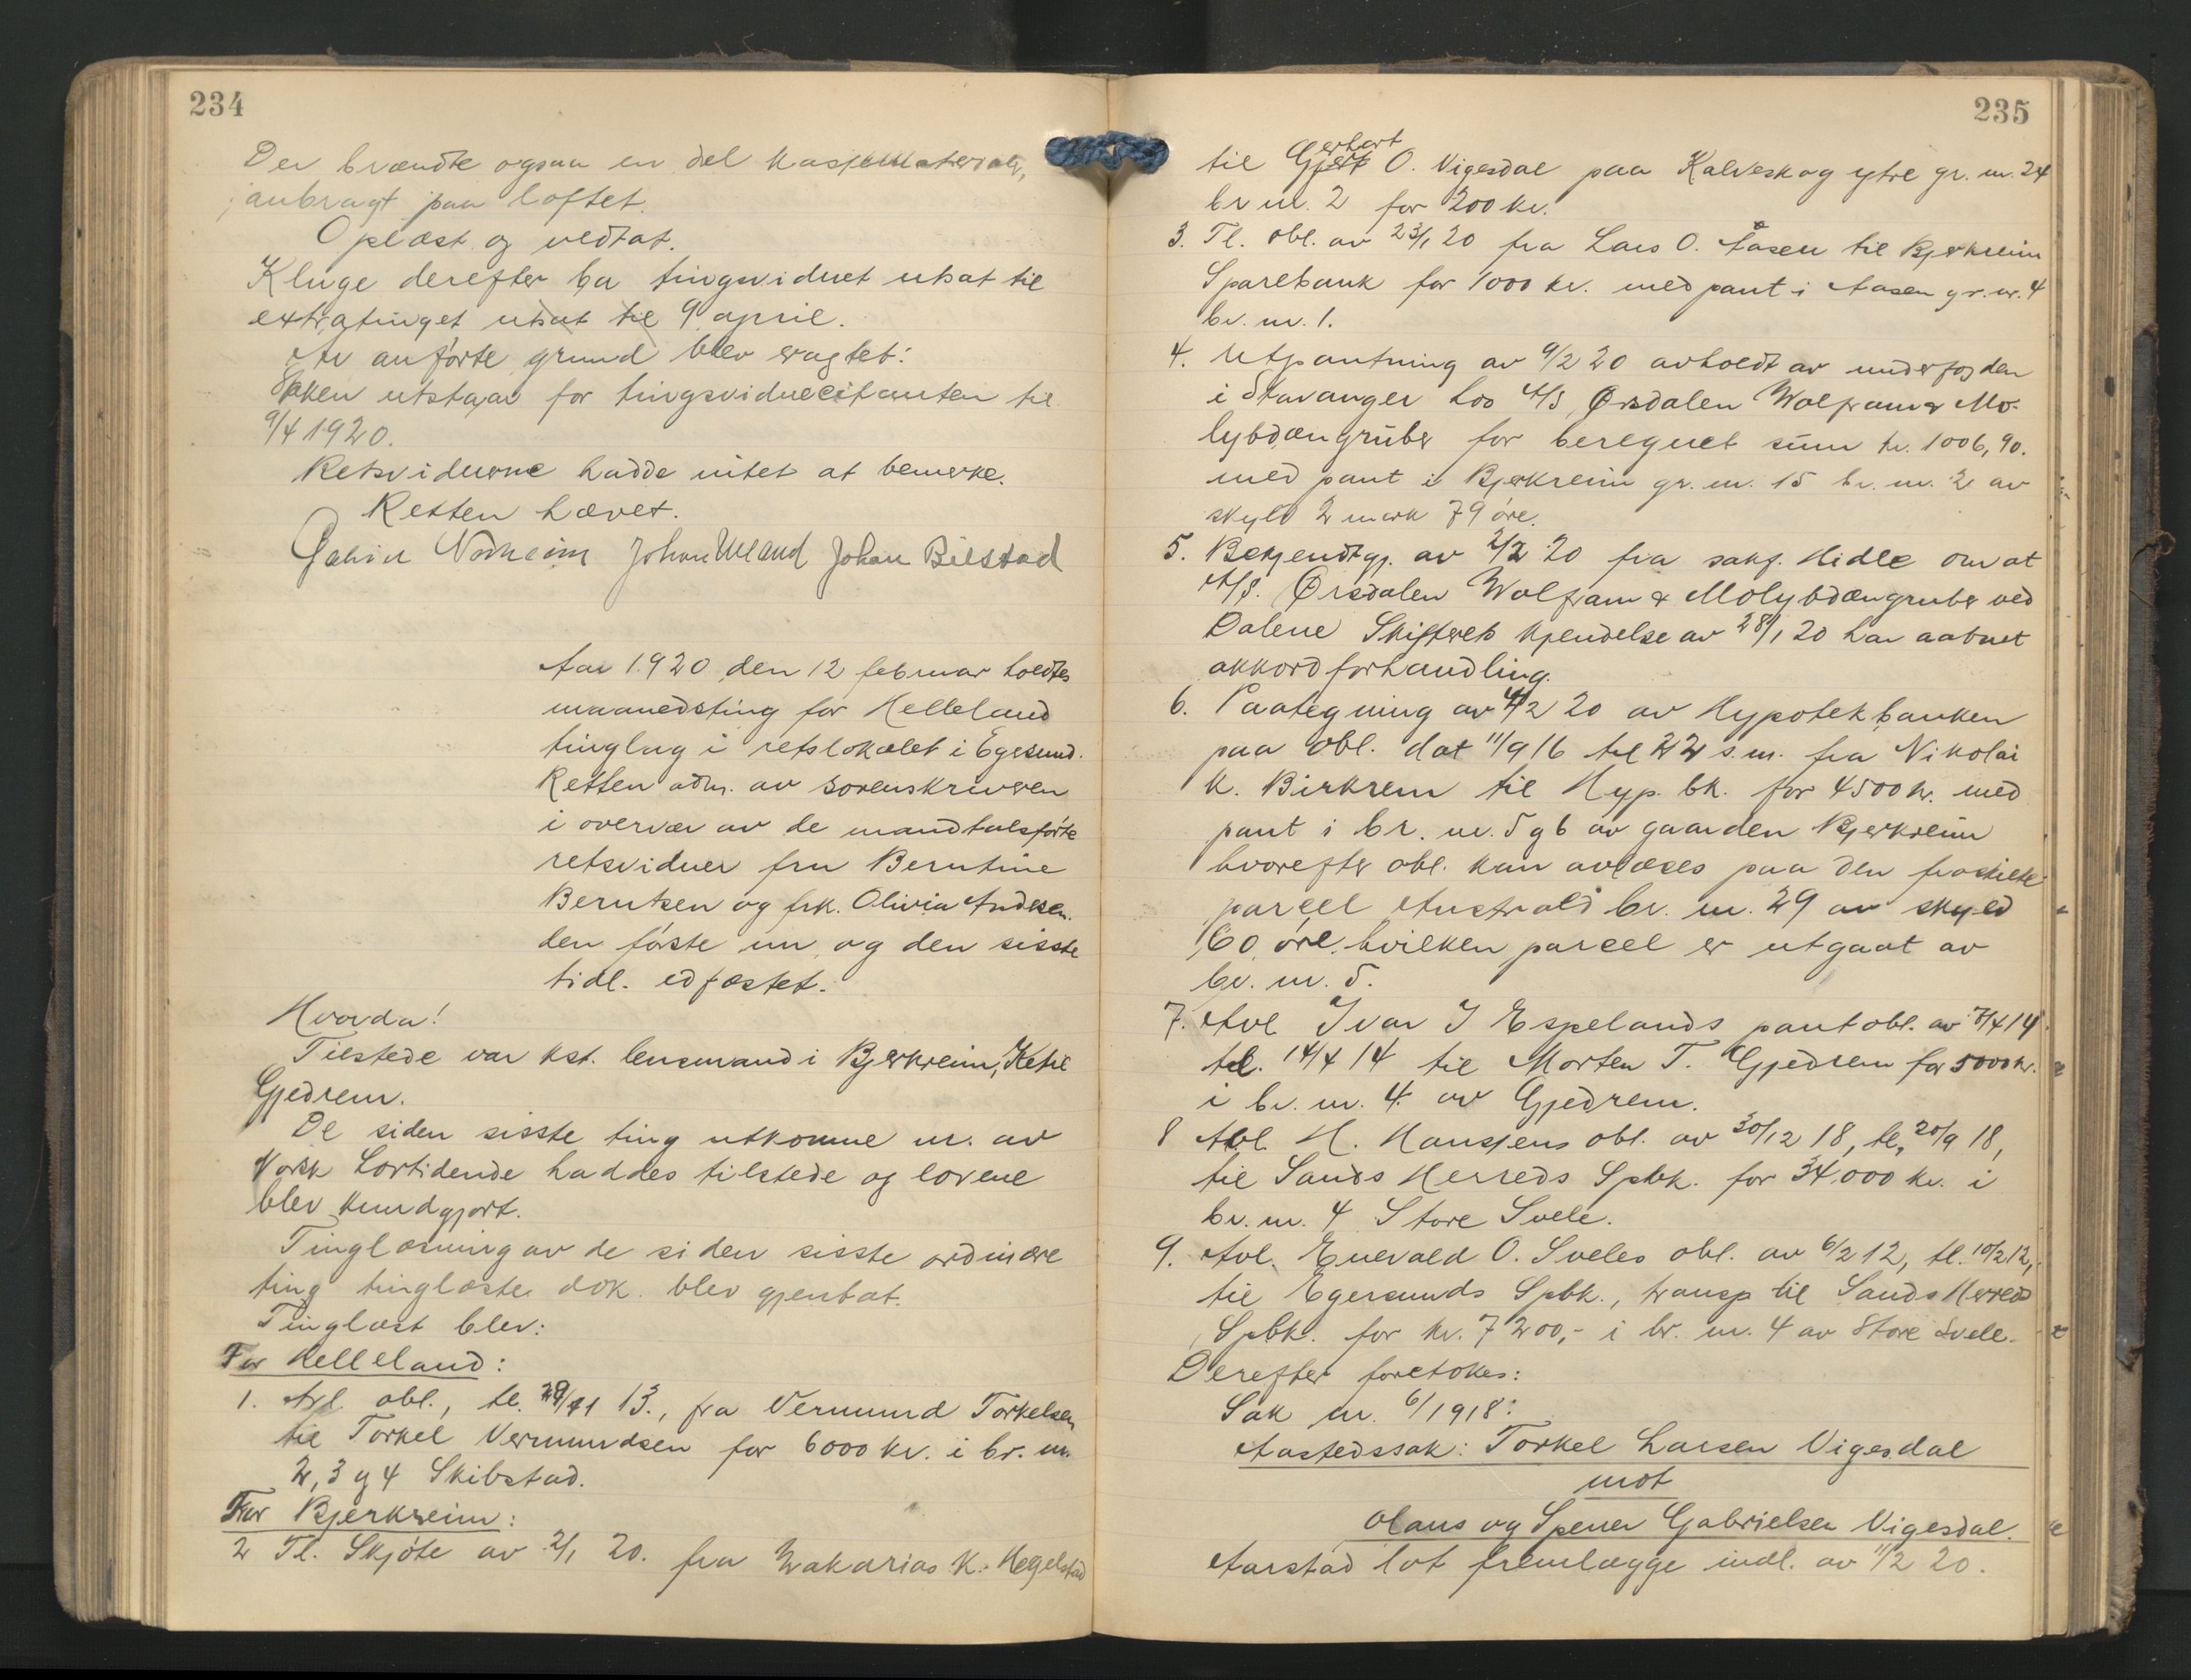 234
Der brændte ogsaa en del kassematerialer,
anbragt paa loftet.
Oplæst og vedtat.
Kluge derefter ba tingsvidnet utsat til
extratinget utsat til 9 april.
Av anførte grund blev eragtet:
Saken utstaar for tingsvidnecitanten til
9/4 1920.
Retsvidnerne hadde intet at bemerke.
Retten hævet.
Nodheim Johan Ueland Johan Bilstad
Aar 1920 den 12 februar holdtes
maanedsting for Helleland
tinglag i retslokalet i Egesund.
Retten adm. av sorenskriveren
i overvær av de mandtalsførte
retsvidner fru Berntine
Berntsen og frk. Olivia Andesen.
den første nu, og den sisste
tidl. edfæstet.
Hvorda!
Tilstede var kst. lensmand i Bjerkreim, Ketil
Gjedrem.
De siden sisste ting utkomne nr. av
Norsk Lovtidende haddes tilstede og lovene
blev kundgjort.
Tinglæsning av de siden sisste ordinære
ting tinglæste dok. blev gjentat.
Tinglæst blev:
For Helleland:
1. Avl. obl., tl. 29/11 13., fra Vermund Torkelsen
til Torkel Vermundsen for 6000 kr. i br. nr.
2, 3 og 4 Skibstad.
For Bjerkreim:
2 Tl. Skjøte av 2/1 20. fra Zakarias K. Hegelstad
235
til Gjert erhart O. Vigesdal paa Kalveskog ytre gr. nr. 24
br nr. 2 for 200 kr.
3. Tl. obl. av 23/1 20 fra Lars O. Åasen til Bjerkreim
Sparebank for 1000 kr. med pant i Aasen gr. nr. 4
br. nr. 1.
4. Utpantning av 9/2 20 avholdt av underfogden
i Stavanger hos A/S Ørsdalen Wolfram & Mo-
lybdængruber for beregnet sum kr. 1006,90.
med pant i Bjerkreim gr. nr. 15 br. nr. 2 av
skyld 2 mark 79 øre.
5. Bekjendtgj. av 2/2 20 fra sakf. Hidle om at
A/S. Ørsdalen Wolfram & Molybdængruber ved
Dalene Skifterets kjendelse av 28/1 20 har aabnet
akkordforhandling.
6. Paategning av 4/2 20 av Hypotekbanken
paa obl. dat 11/9 16 tl 22 s.m. fra Nikolai
K. Birkrem til Hyp. bk. for 4500 kr. med
pant i br. nr. 5 og 6 av gaarden Bjerkreim
hvorefter obl. kan avlæses paa den fraskilte
parcel Australd br. nr. 29 av skyld
60 øre. hvilken parcel er utgaat av
br. nr. 5.
7. Avl Ivar I Espelands pantobl. av 7/4 14
tl. 14/4 14 til Morten T. Gjedrem for 5000 kr.
i br. nr. 4 av Gjedrem.
8 Avl H. Hansens obl. av 30/12 18, tl. 20/9 18,
til Sands Herreds Spbk. for 34.000 kr. i
br. nr. 4 Store Svele.
9. Avl. Enevald O. Sveles obl. av 6/2 12, tl. 10/2 12,
til Egersunds Spbk., transp til Sands Herreds
Spbk. for kr. 7200,- i br. nr. 4 av Store Svele.
Derefter foretokes:
Sak nr. 6/1918:
Aastedssak: Torkel Larsen Vigesdal
mot
Olaus og Spener Gabrielsen Vigesdal.
Aarstad lot fremlægge indl. av 11/2 20.